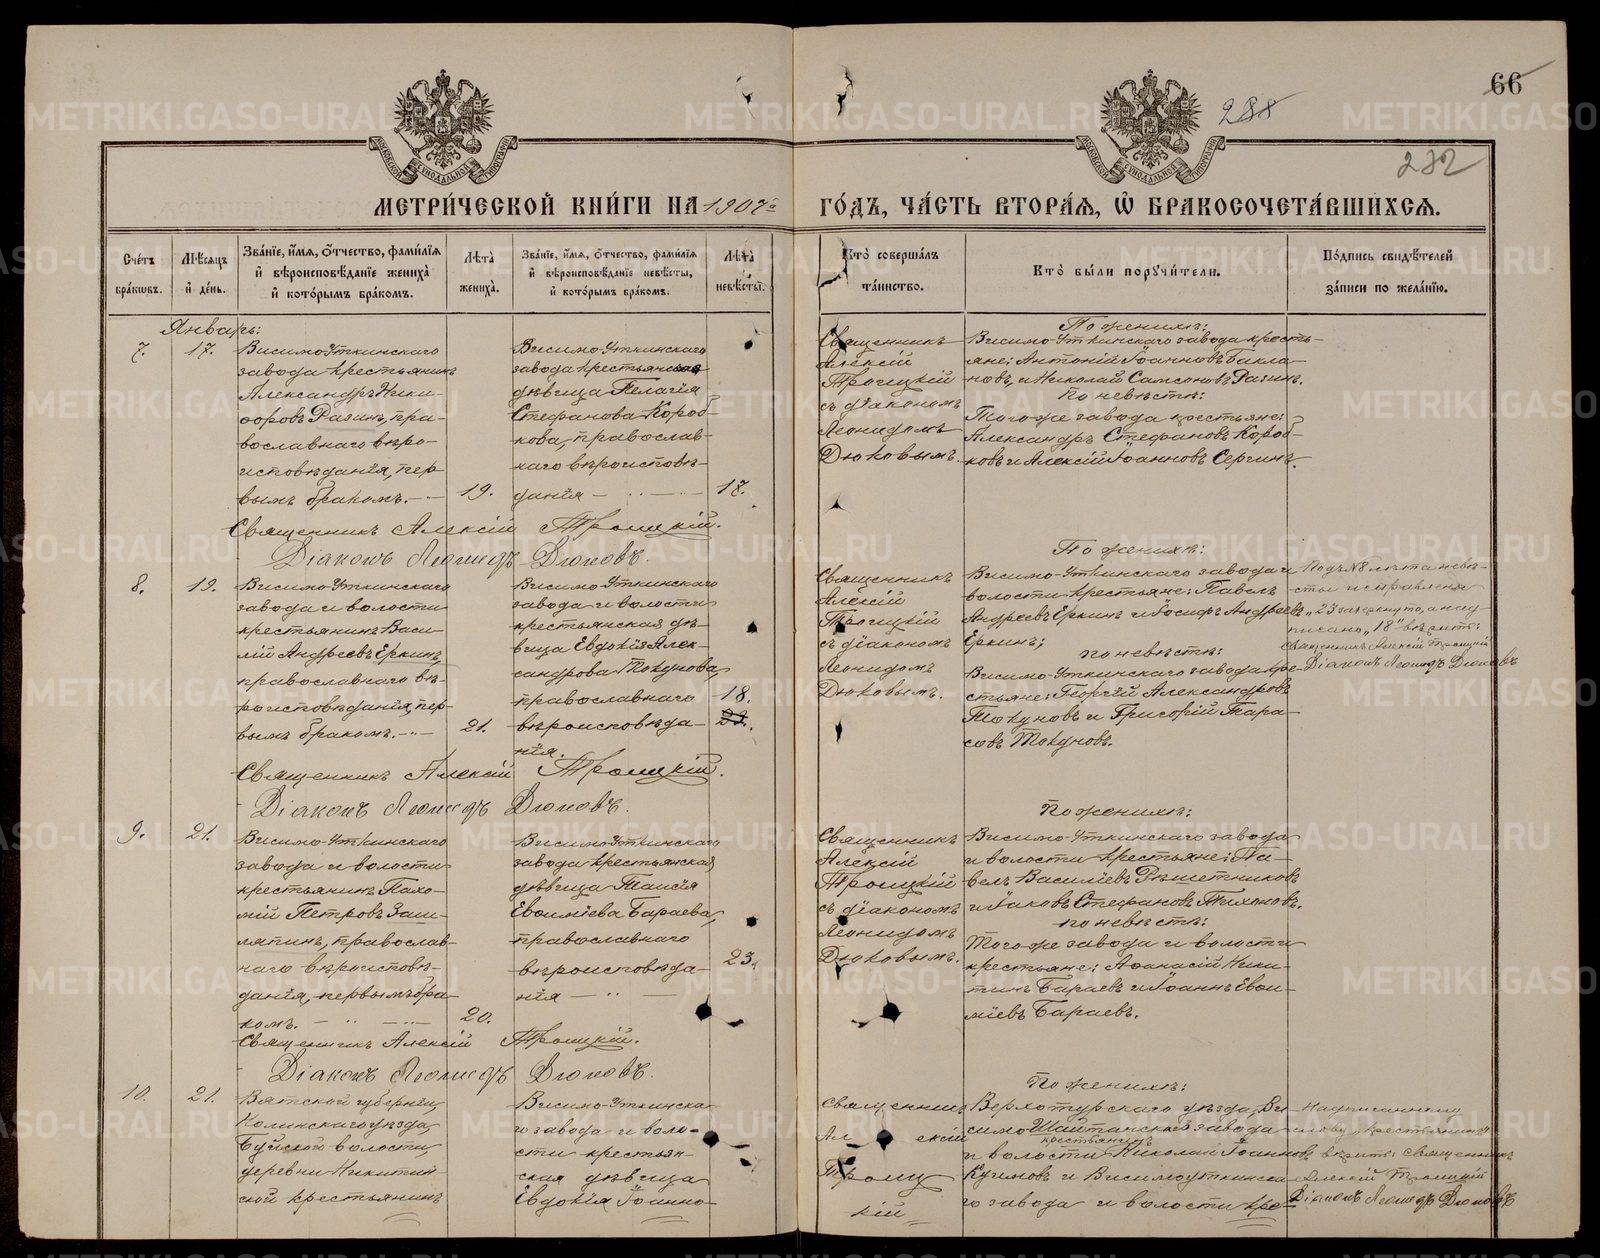 66
288
282
МЕТРИ́ЧЕСКОЙ КНИ́ГИ НА 1907й ГО́ДЪ, ЧА́СТЬ ВТОРА́Я, Ѡ҆ БРАКОСОЧЕТА́ВШИХСЯ.
Сче́тъ бра́кѡвъ.
Мѣ́сяцъ и҆ де́нь.
Зва́нїе, и҆́мя, ѻ҆́тчество, фами́лїя и҆ вѣроисповѣ́данїе жениха̀ и҆ кото́рымъ бра́комъ.
Лѣ́та жениха̀.
Зва́нїе, и҆́мя, ѻ҆́тчество, фами́лїя и҆ вѣроисповѣ́данїе невѣ́сты, и҆ кото́рымъ бра́комъ.
Лѣ́та невѣ́сты.
Кто̀ соверша́лъ та́инство.
Кто̀ бы́ли поручи́тели.
По́дпись свидѣ́телей за́писи по жела́нїю.
Январь:
7.
17.
Висимо-Уткинскаго
завода крестьянинъ
Александръ Ники-
форовъ Разинъ, пра-
вославнаго вѣро-
исповѣданія, пер-
вымъ бракомъ.
19.
Висимо-Уткинскаго
завода крестьянская
дѣвица Пелагія
Стефанова Короб-
кова, православ-
наго вѣроисповѣ-
данія
17.
Священникъ
Алексій
Троицкій
съ діакономъ
Леонидомъ
Дюковымъ.
По женихѣ:
Висимо-Уткинскаго завода кресть-
яне: Антоній Іоанновъ Бакла-
новъ и Николай Самсоновъ Разинъ.
По невѣстѣ:
Того же завода крестьяне:
Александръ Стефановъ Короб-
ковъ и Алексій Іоанновъ Сергинъ.
Священникъ Алексій Троицкій.
Діаконъ Леонидъ Дюковъ.
8.
19.
Висимо-Уткинскаго
завода и волости
крестьянинъ Васи-
лій Андреевъ Еркинъ,
православнаго вѣ-
роисповѣданія, пер-
вымъ бракомъ.
21.
Висимо-Уткинскаго
завода и волости
крестьянская дѣ-
вица Евдокія Алек-
сандрова Токунова,
православнаго
вѣроисповѣда-
нія.
18.
Священникъ
Алексій
Троицкій
съ діакономъ
Леонидомъ
Дюковымъ.
По женихѣ:
Висимо-Уткинскаго завода и
волости крестьяне: Павелъ
Андреевъ Еркинъ и Іосифъ Андреевъ
Еркинъ;
по невѣстѣ:
Висимо-Уткинскаго завода кре-
стьяне: Георгій Александровъ
Токуновъ и Григорій Тара-
совъ Токуновъ.
Подъ №8 лѣта невѣ-
сты исправлены
"23" зачеркнуто, а над-
писано "18" вѣрить:
Священникъ Алексій Троицкій
Діаконъ Леонидъ Дюковъ
Священникъ Алексій Троицкій.
Діаконъ Леонидъ Дюковъ.
9.
21.
Висимо-Уткинскаго
завода и волости
крестьянинъ Пахо-
мій Петровъ Заш-
ляпинъ, православ-
наго вѣроисповѣ-
данія, первымъ бра-
комъ.
20.
Висимо-Уткинскаго
завода крестьянская
дѣвица Таисія
Евѳиміева Бараева,
православнаго
вѣроисповѣда-
нія
23.
Священникъ
Алексій
Троицкій
съ діакономъ
Леонидомъ
Дюковымъ.
По женихѣ:
Висимо-Уткинскаго завода
и волости крестьяне: Па-
велъ Василіевъ Рѣшетниковъ
и Іаковъ Стефановъ Тихоновъ.
по невѣстѣ:
Того же завода и волости
крестьяне: Аѳанасій Ники-
тинъ Бараевъ и Іоаннъ Евѳи-
міевъ Бараевъ.
Священникъ Алексій Троицкій.
Діаконъ Леонидъ Дюковъ.
10.
21.
Вятской губерніи,
Нолинскаго уѣзда,
Буйской волости,
деревни Никитин-
ской крестьянинъ
Висимо-Уткинска-
го завода и воло-
сти крестьян-
ская дѣвица
Евдокія Іоанно-
Священникъ
Алексій
Троиц
кій
По женихѣ:
Верхотурскаго уѣзда, Ви-
симо Шайтанскаго завода
крестьянинъ
и волости Николай Іоанновъ
и Висимоуткинска-
го завода и волости кре-
Надписанному
слову "крестьянинъ"
вѣрить: Священникъ
Алексій Троицкій
Діаконъ Леонидъ Дюковъ
METRIKI.GASO-URAL.RU